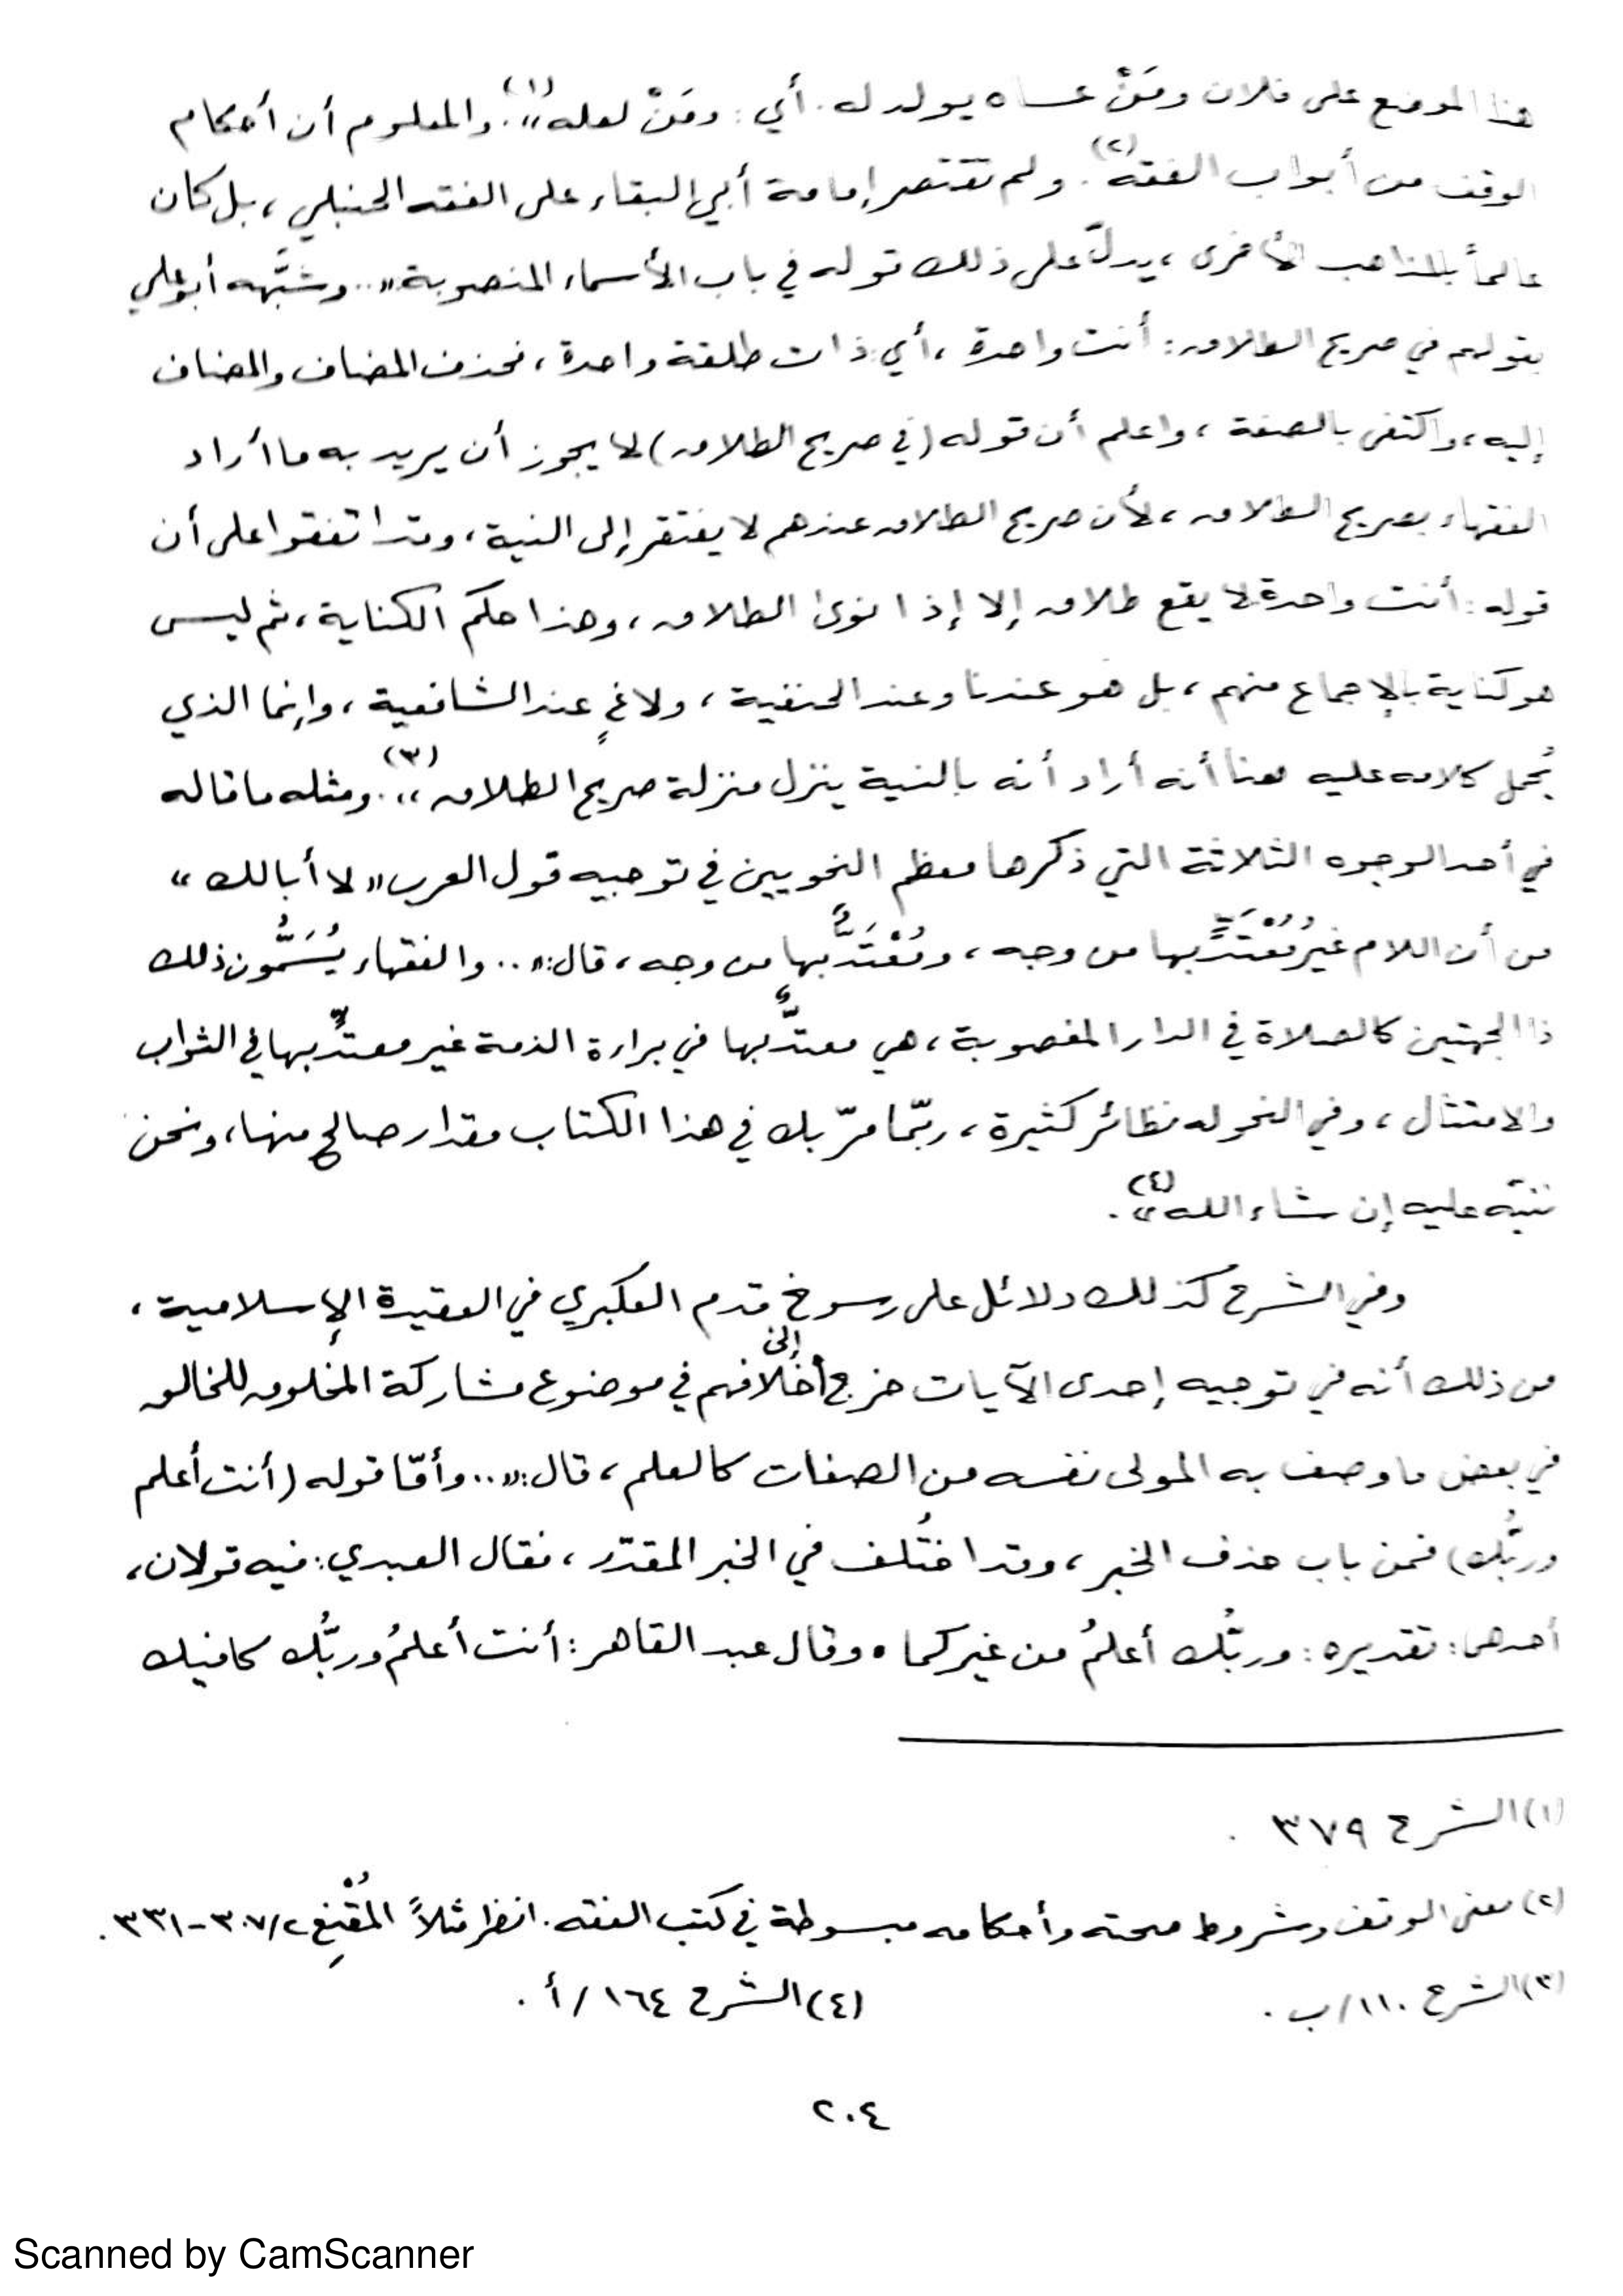 هذا الموضع على فلان ومَنْ عساه يولد له. أي: ومَنْ لعله"(١). والمعلوم أن أحكام
الوقف من أبواب الفقه(٢). ولم تقتصر إمامة أبي البقاء على الفقه الحنبلي، بل كان
عالماً بالمذاهب الأخرى، يدلّ على ذلك قوله في باب الأسماء المنصوبة "..وشبَّهه أبو علي
بقولهم في صريح الطلاق: أنت واحدة، أي: ذات طلقة واحدة، فحذف المضاف والمضاف
إليه، واكتفى بالصفة، واعلم أن قوله (في صريح الطلاق) لا يجوز أن يريد به ما أراد
الفقهاء بصريح الطلاق، لأن صريح الطلاق عندهم لا يفتقر إلى النية، وقد اتفقوا على أن
قوله: أنت واحدة لا يقع طلاق إلا إذا نوى الطلاق، وهذا حكم الكناية، ثم ليس
هو كناية بالإجماع منهم، بل هو عندنا وعند الحنفية، ولاغٍ عند الشافعية، وإنما الذي
يُحمل كلامه عليه هنا أنه أراد أنه بالنية ينزل منزلة صريح الطلاق"(٣). ومثله ما قاله
في أحد الوجوه الثلاثة التي ذكرها معظم النحويين في توجيه قول العرب "لا أبا لك"
من أن اللام غيرُ مُعْتَدٍّ بها من وجه، ومُعْتَدٌّ بها من وجه، قال: "..والفقهاء يُسَمُّون ذلك
ذا الجهتين كالصلاة في الدار المغصوبة، هي معتدٌّ بها في براءة الذمة غير معتدٍّ بها في الثواب
والامتثال، وفي النحو له نظائر كثيرة، ربّما مرّ بك في هذا الكتاب مقدار صالح منها، ونحن
ننبّه عليه إن شاء الله"(٤).
وفي الشرح كذلك دلائل على رسوخ قدم العكبري في العقيدة الإسلامية،
من ذلك أنه في توجيه إحدى الآيات خرج إلى أخلافهم في موضوع مشاركة المخلوق للخالق
في بعض ما وصف به المولى نفسه من الصفات كالعلم، قال: "..وأمّا قوله (أنت أعلم
وربُّك) فمن باب حذف الخبر، وقد اختُلف في الخبر المقدّر، فقال العبدي: فيه قولان،
أحدهما: تقديره: وربُّك أعلمُ من غيركما. وقال عبد القاهر: أنت أعلمُ وربُّك كافيك
(١) الشرح ٣٧٩.
(٢) معنى الوقف وشروط صحته وأحكامه مبسوطة في كتب الفقه. انظر مثلاً المُقْنِع ٢/٣٠٧-٣٣١.
(٣) الشرح ١١٠/ب. (٤) الشرح ١٦٤/أ.
٢٠٤
Scanned by CamScanner